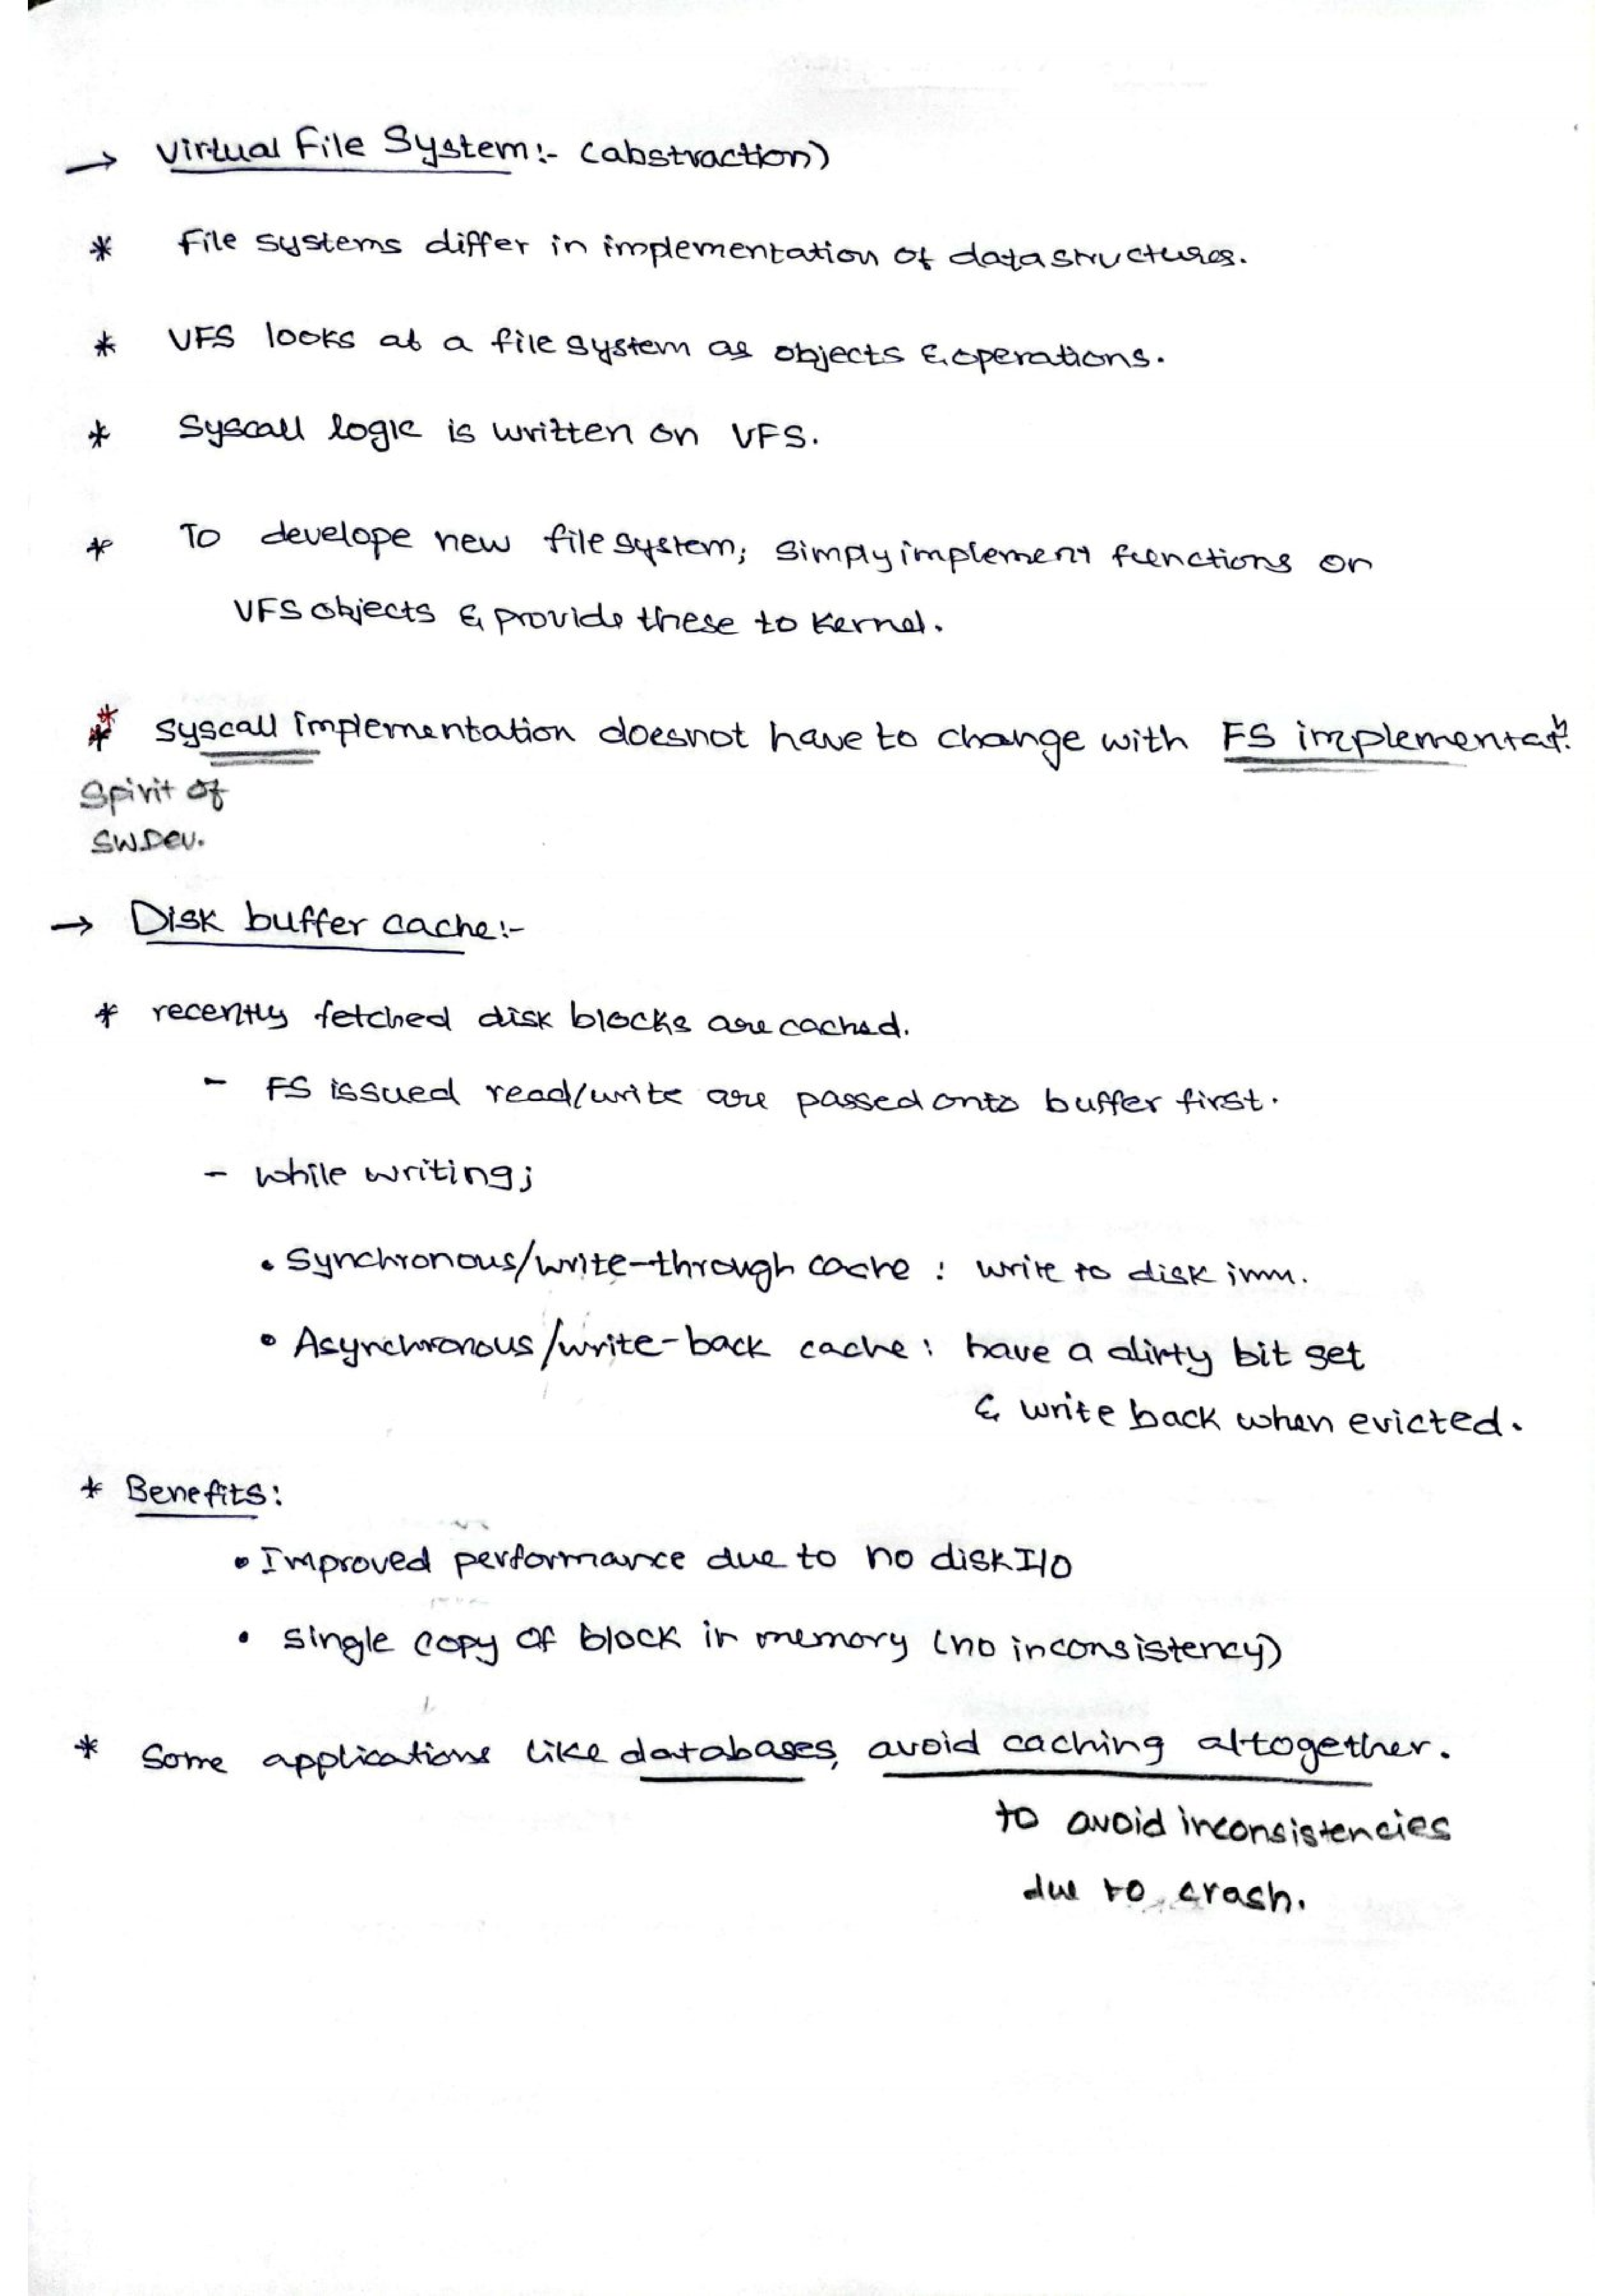 → Virtual File System:- (abstraction)
* File systems differ in implementation of datastructures.
* VFS looks at a file system as objects & operations.
* Syscall logic is written on VFS.
* To develope new file system; simply implement functions on
VFS objects & provide these to kernel.
* syscall implementation doesnot have to change with FS implementatn.
Spirit of
SW.Dev.
→ Disk buffer cache:-
* recently fetched disk blocks are cached.
- FS issued read/write are passed onto buffer first.
- while writing;
• Synchronous/write-through cache : write to disk imm.
• Asynchronous/write-back cache : have a dirty bit set
& write back when evicted.
* Benefits:
• Improved performance due to no disk I/O
• single copy of block in memory (no inconsistency)
* Some applications like databases, avoid caching altogether.
to avoid inconsistencies
due to crash.